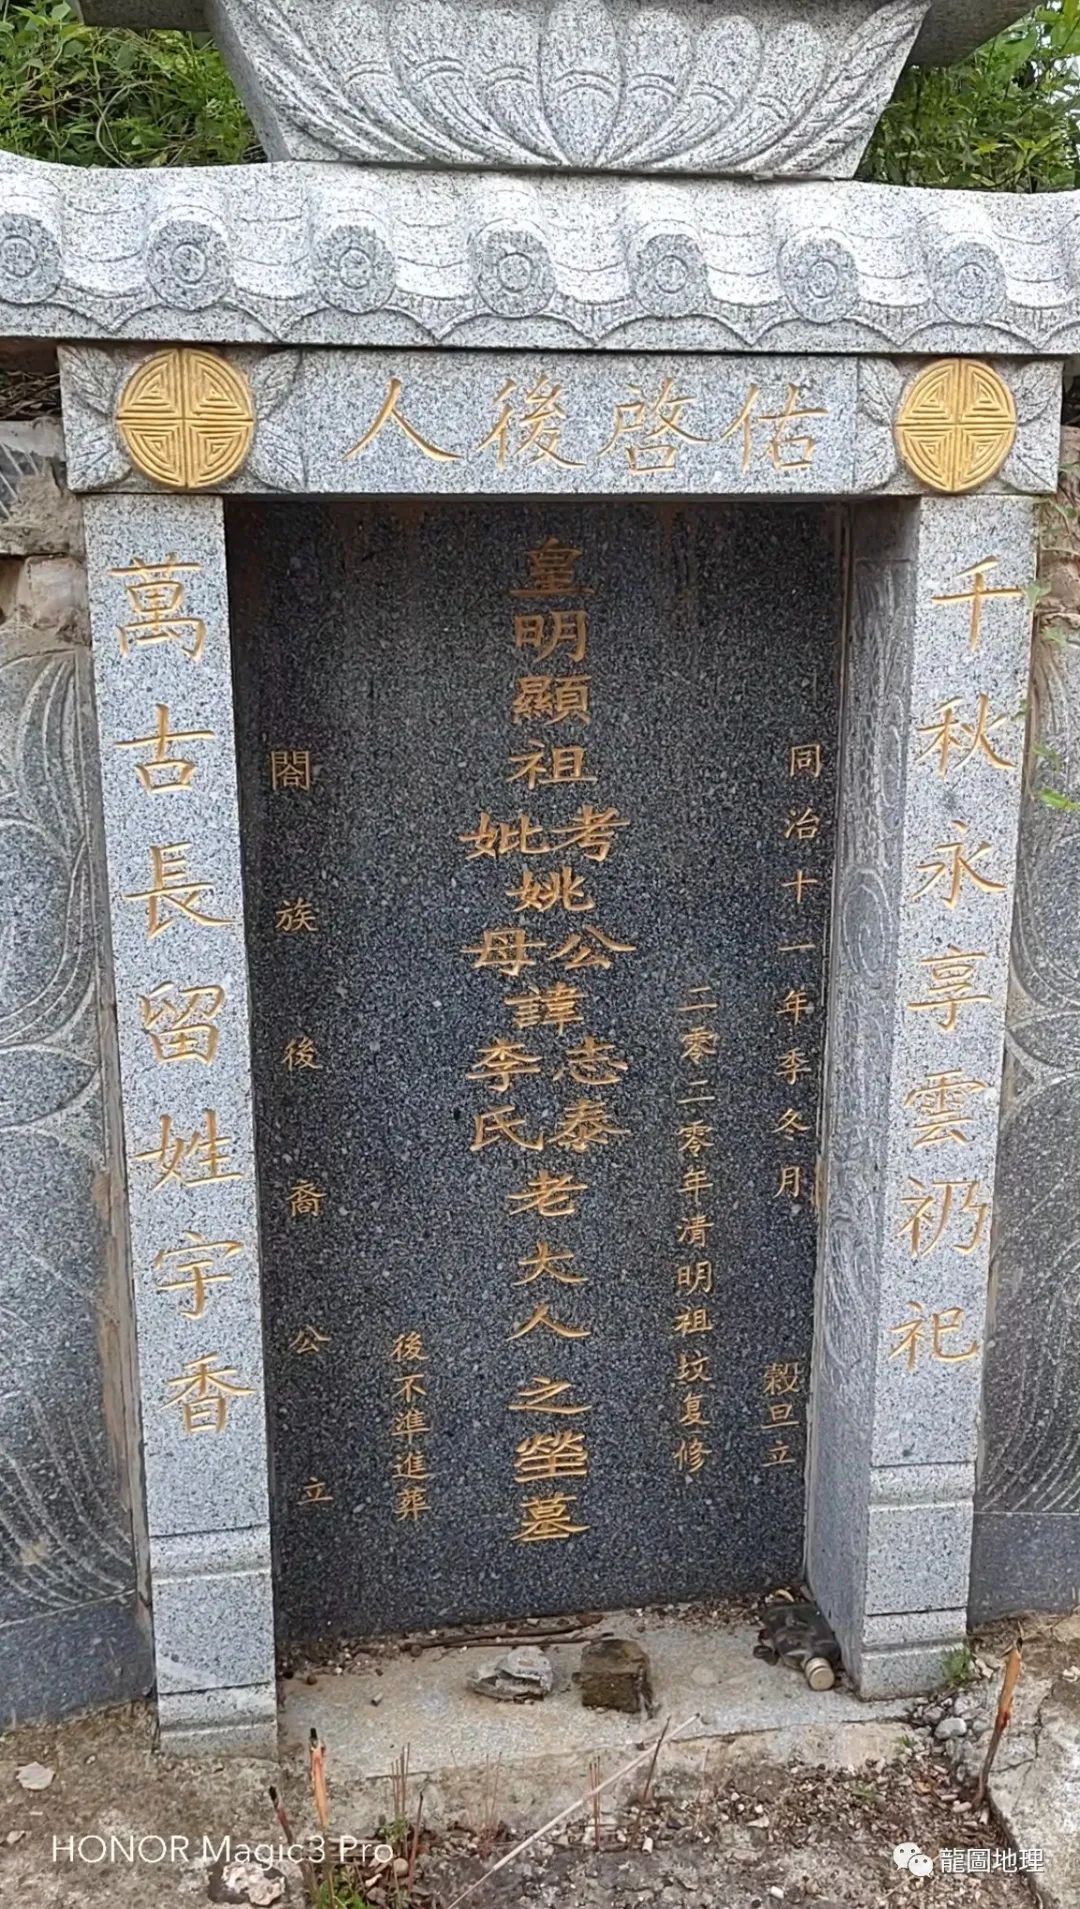 佑啓後人
千秋永享雲礽祀
萬古長留姓字香
同治十一年季冬月 榖旦立
二零二零年清明祖墳复修
皇明顯祖考妣姚公母諱志泰李氏老大人之塋墓
後不準進葬
閤族後裔公立
HONOR Magic3 Pro
龍圖地理